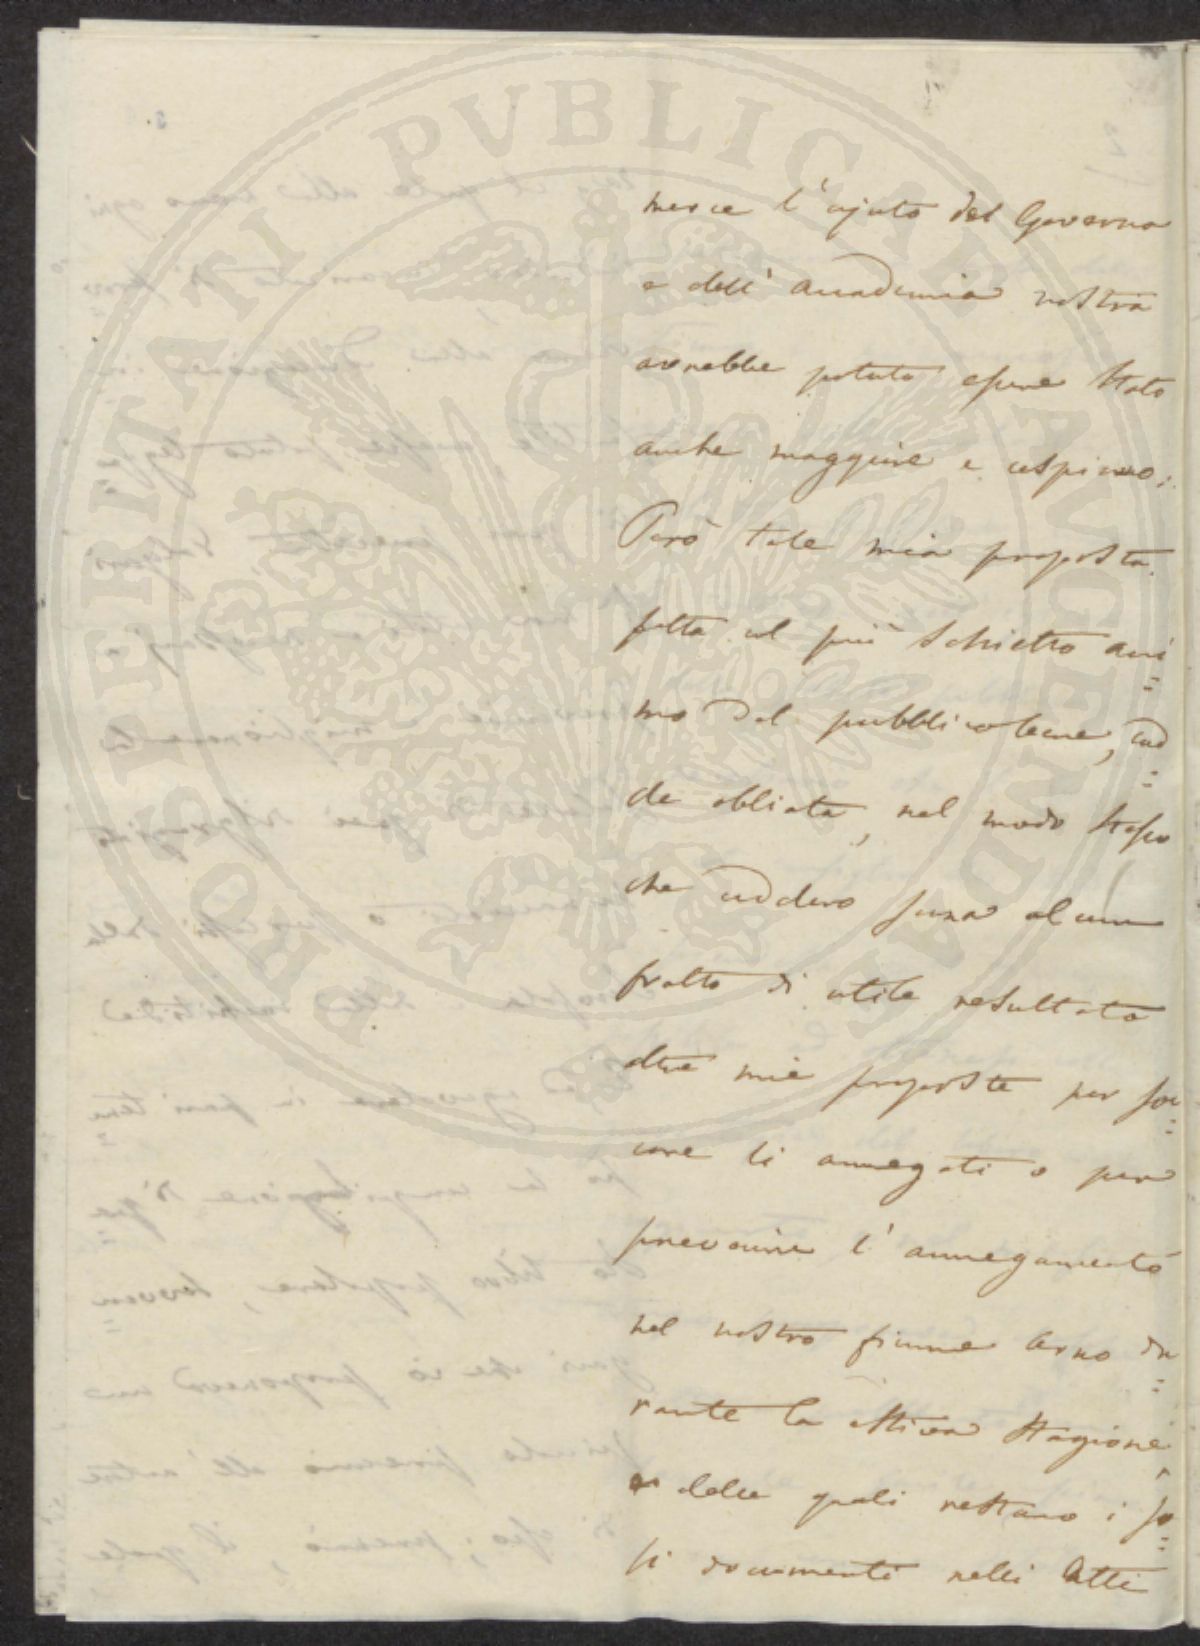 PROSPERITATI PVBLICAE AVGENDAE
merce l'ajuto del Governo
e dell' Accademia nostra
avrebbe potuto essere stato
anche maggiore e cospicuo;
Però tale mia proposta
fatta col più schietto ani=
mo del pubblico bene, cad=
de obliata, nel modo stesso
che caddero senza alcun
frutto di utile resultato
altre mie proposte per soc=
corre li annegati o per
prevenire l'annegamento
nel nostro fiume Arno du=
rante la estiva stagione,
delle quali restano i so=
li documenti nelli Atti